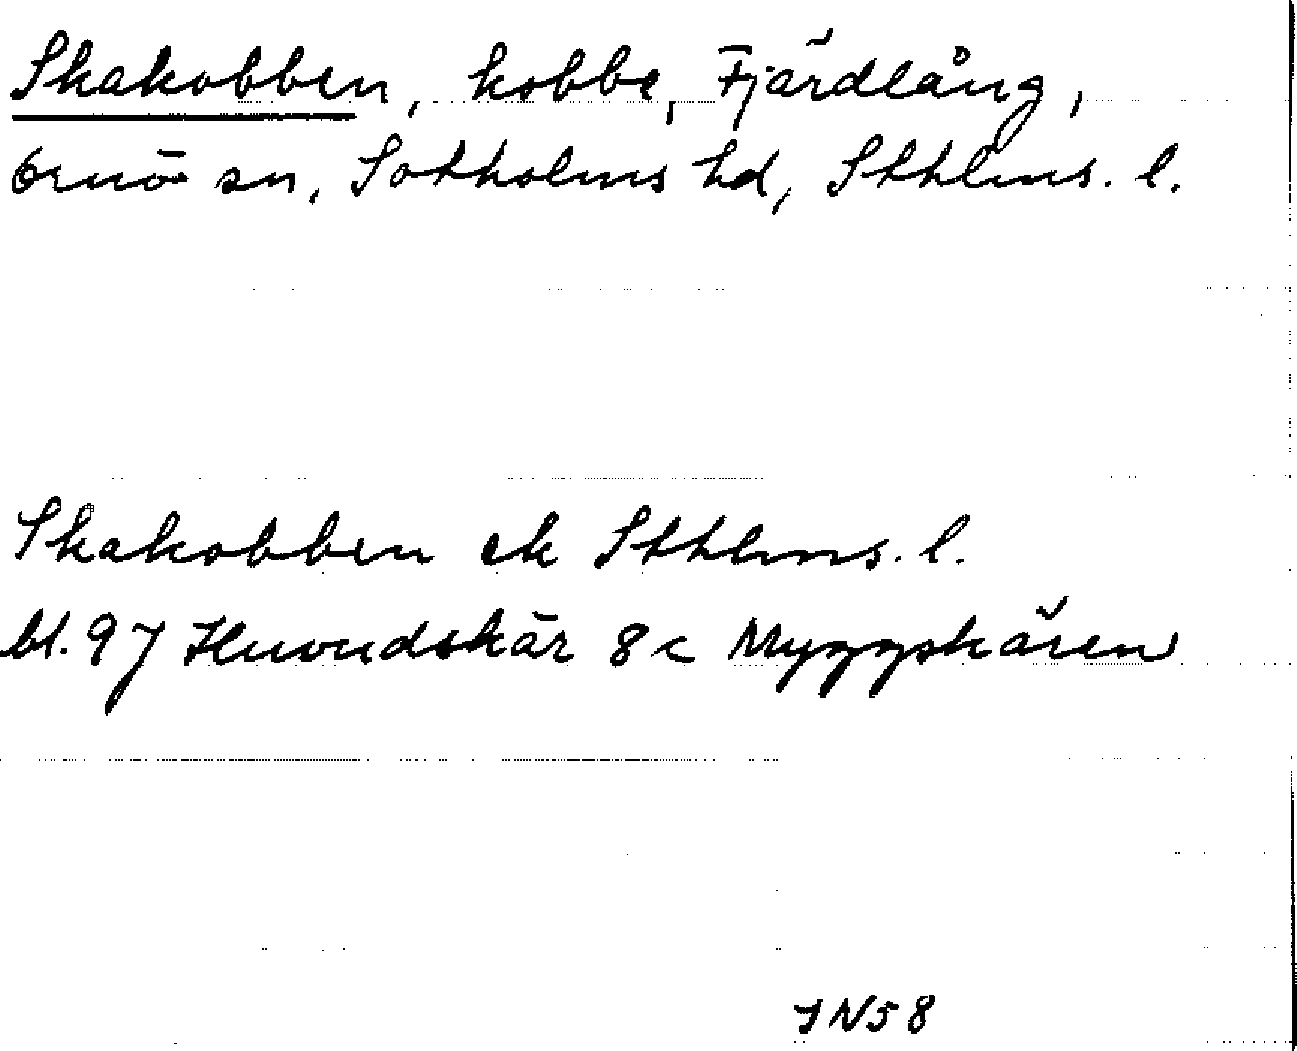 Skakobben, kobbe, Fjärdlång,
Ornö sn, Sotholms hd, Sthlms. l.
Skakobben ek Sthlms. l.
bl. 97 Huvudskär 8c Myggskären
JN58